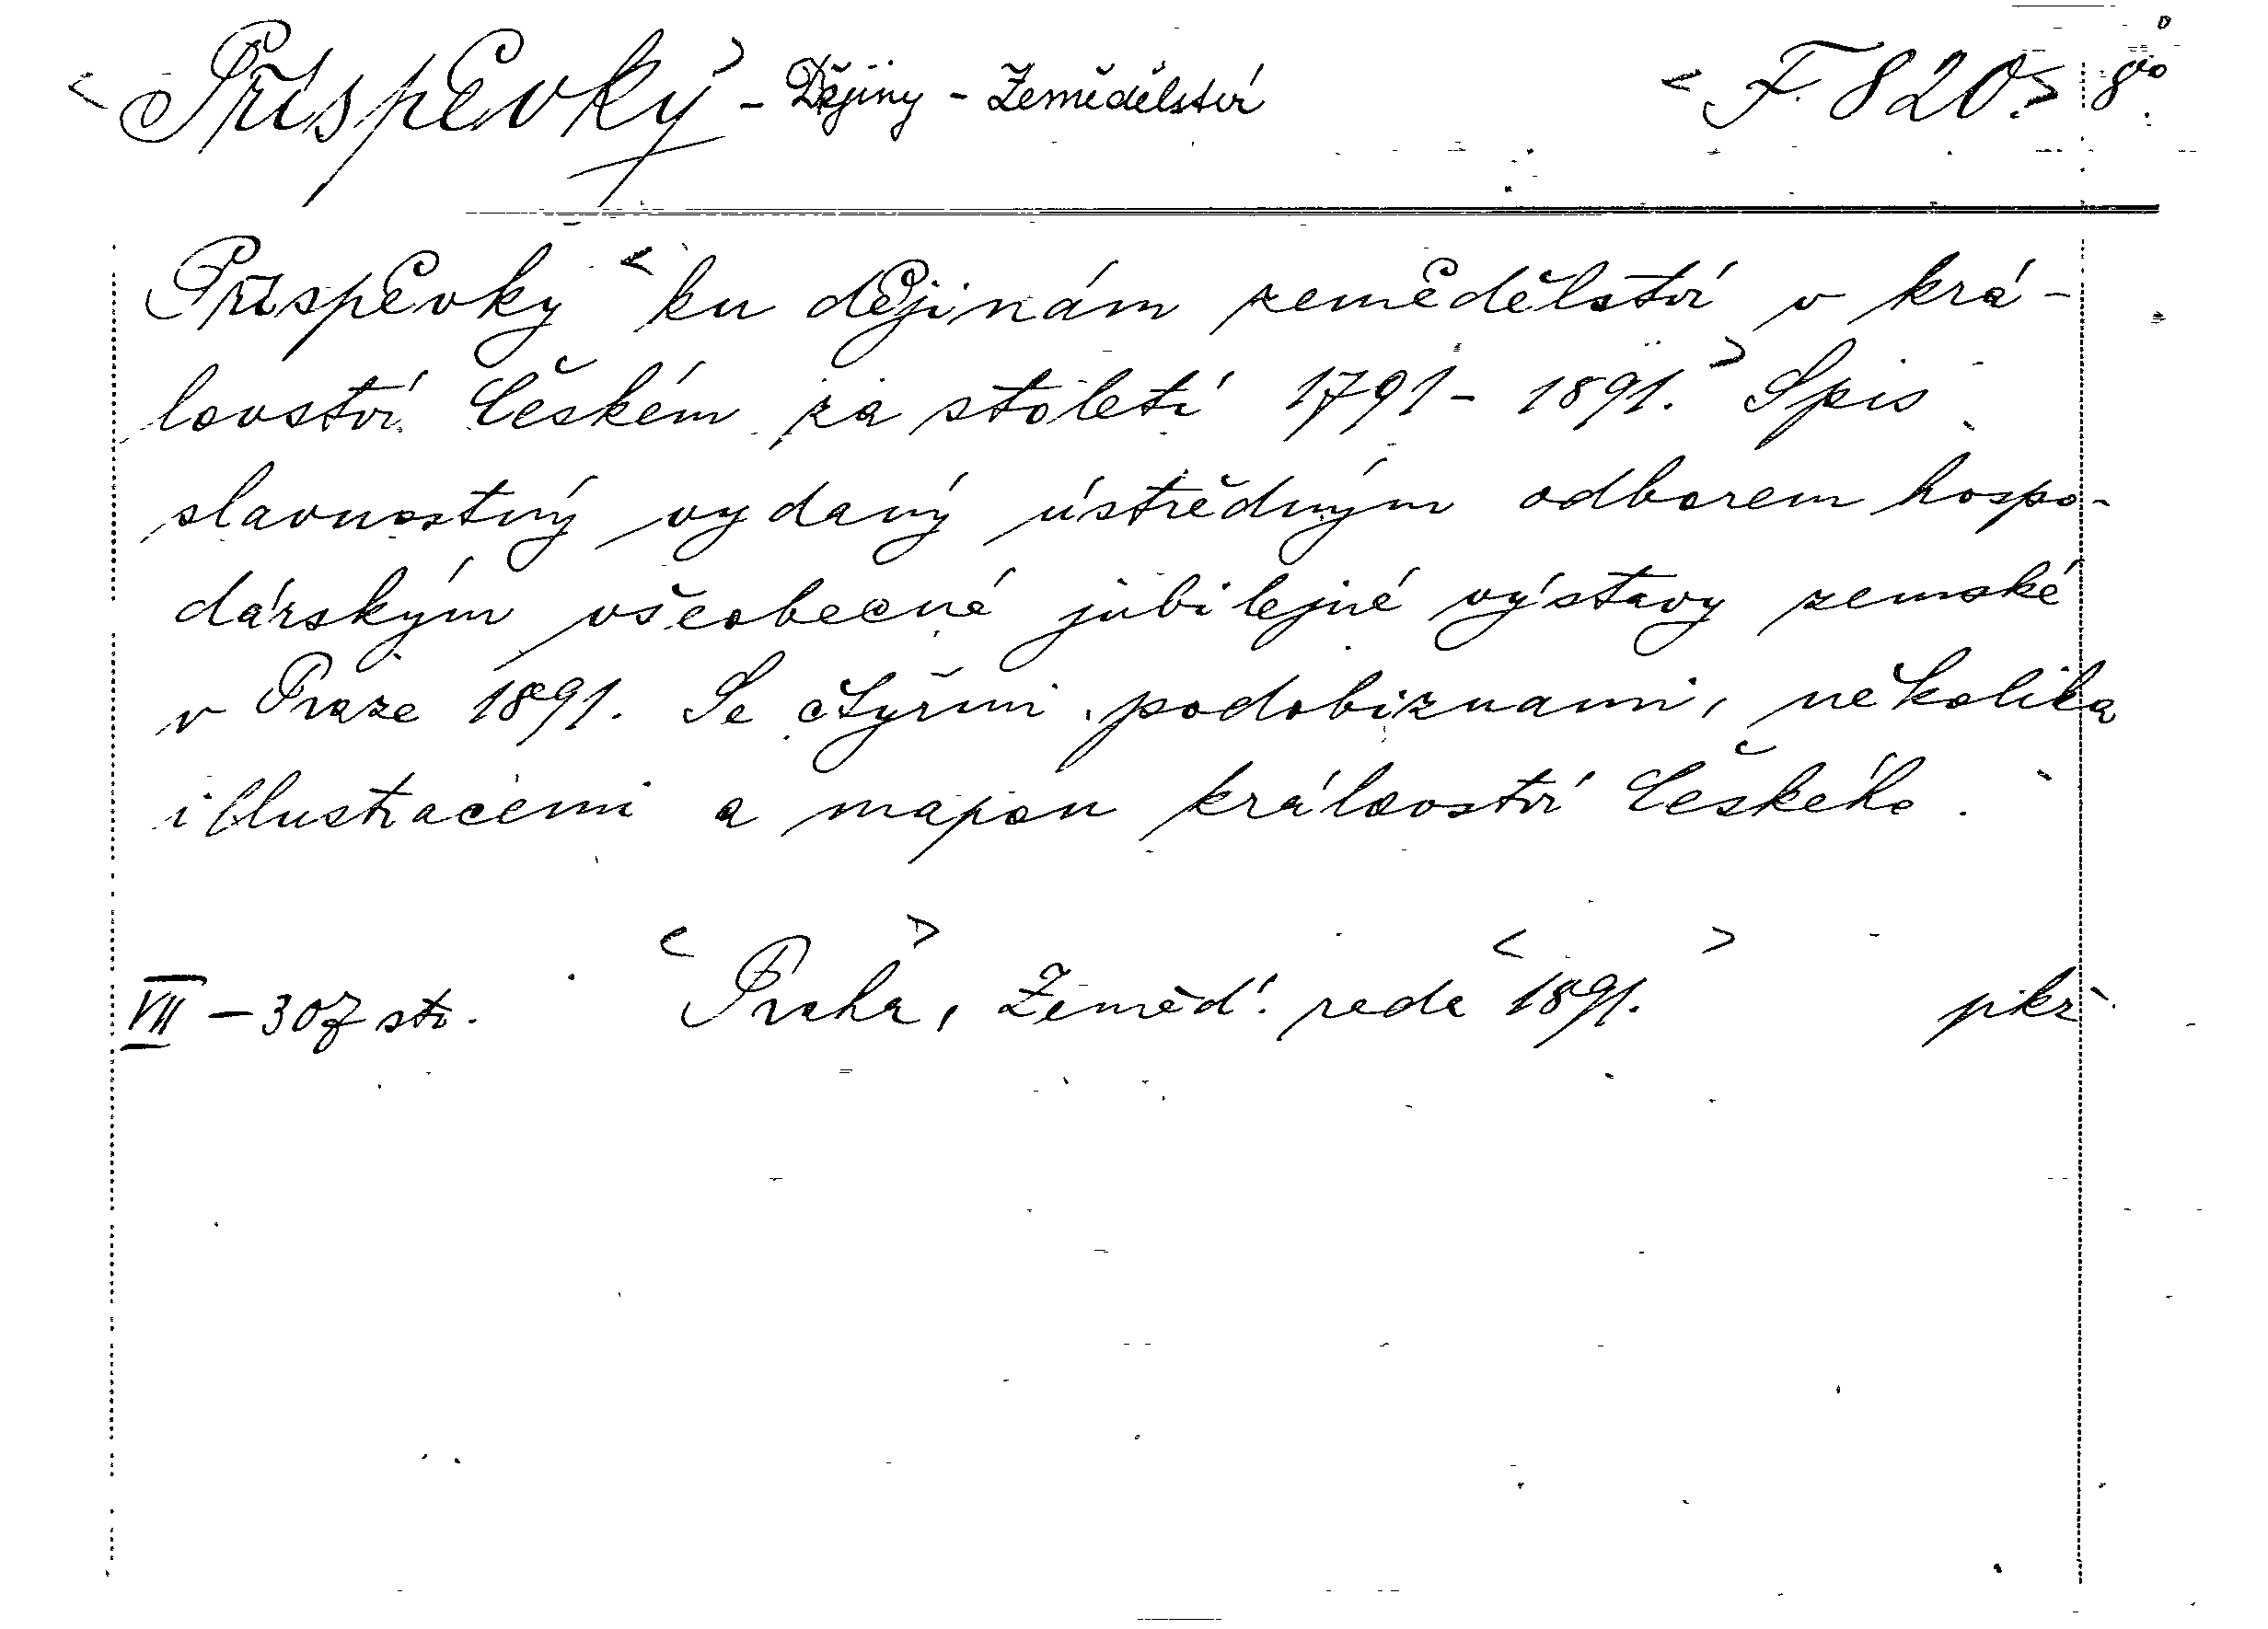 <Příspěvky> - Dějiny - Zemědělství <F 820.> 8°
Příspěvky <ku dějinám zemědělství v krá-
lovství Českém za století 1791 - 1891.> Spis
slavnostný vydaný ústředným odborem hospo-
dářským všeobecné jubilejné výstavy zemské
v Praze 1891. Se čtyřmi podobiznami, několika
illustracemi a mapou království Českého.
VII - 307 str. <Praha>, Zeměd. rada <1891.>